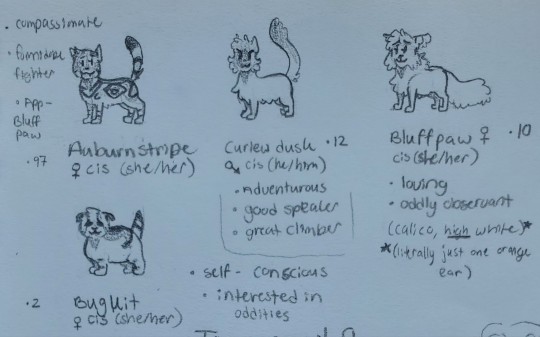 • compassionate
• formidable
fighter
• App-
Bluff
paw
• 97
Auburnstripe
♀ cis (she/her)
Curlewdusk • 12
cis (he/him)
• Adventurous
• good speaker
• great climber
• self-conscious
• interested in
oddities
Bluffpaw ♀ • 10
cis (she/her)
• loving
• oddly observant
(calico, high white)*
*(literally just one orange
ear)
• 2
Bugkit
♀ cis (she/her)